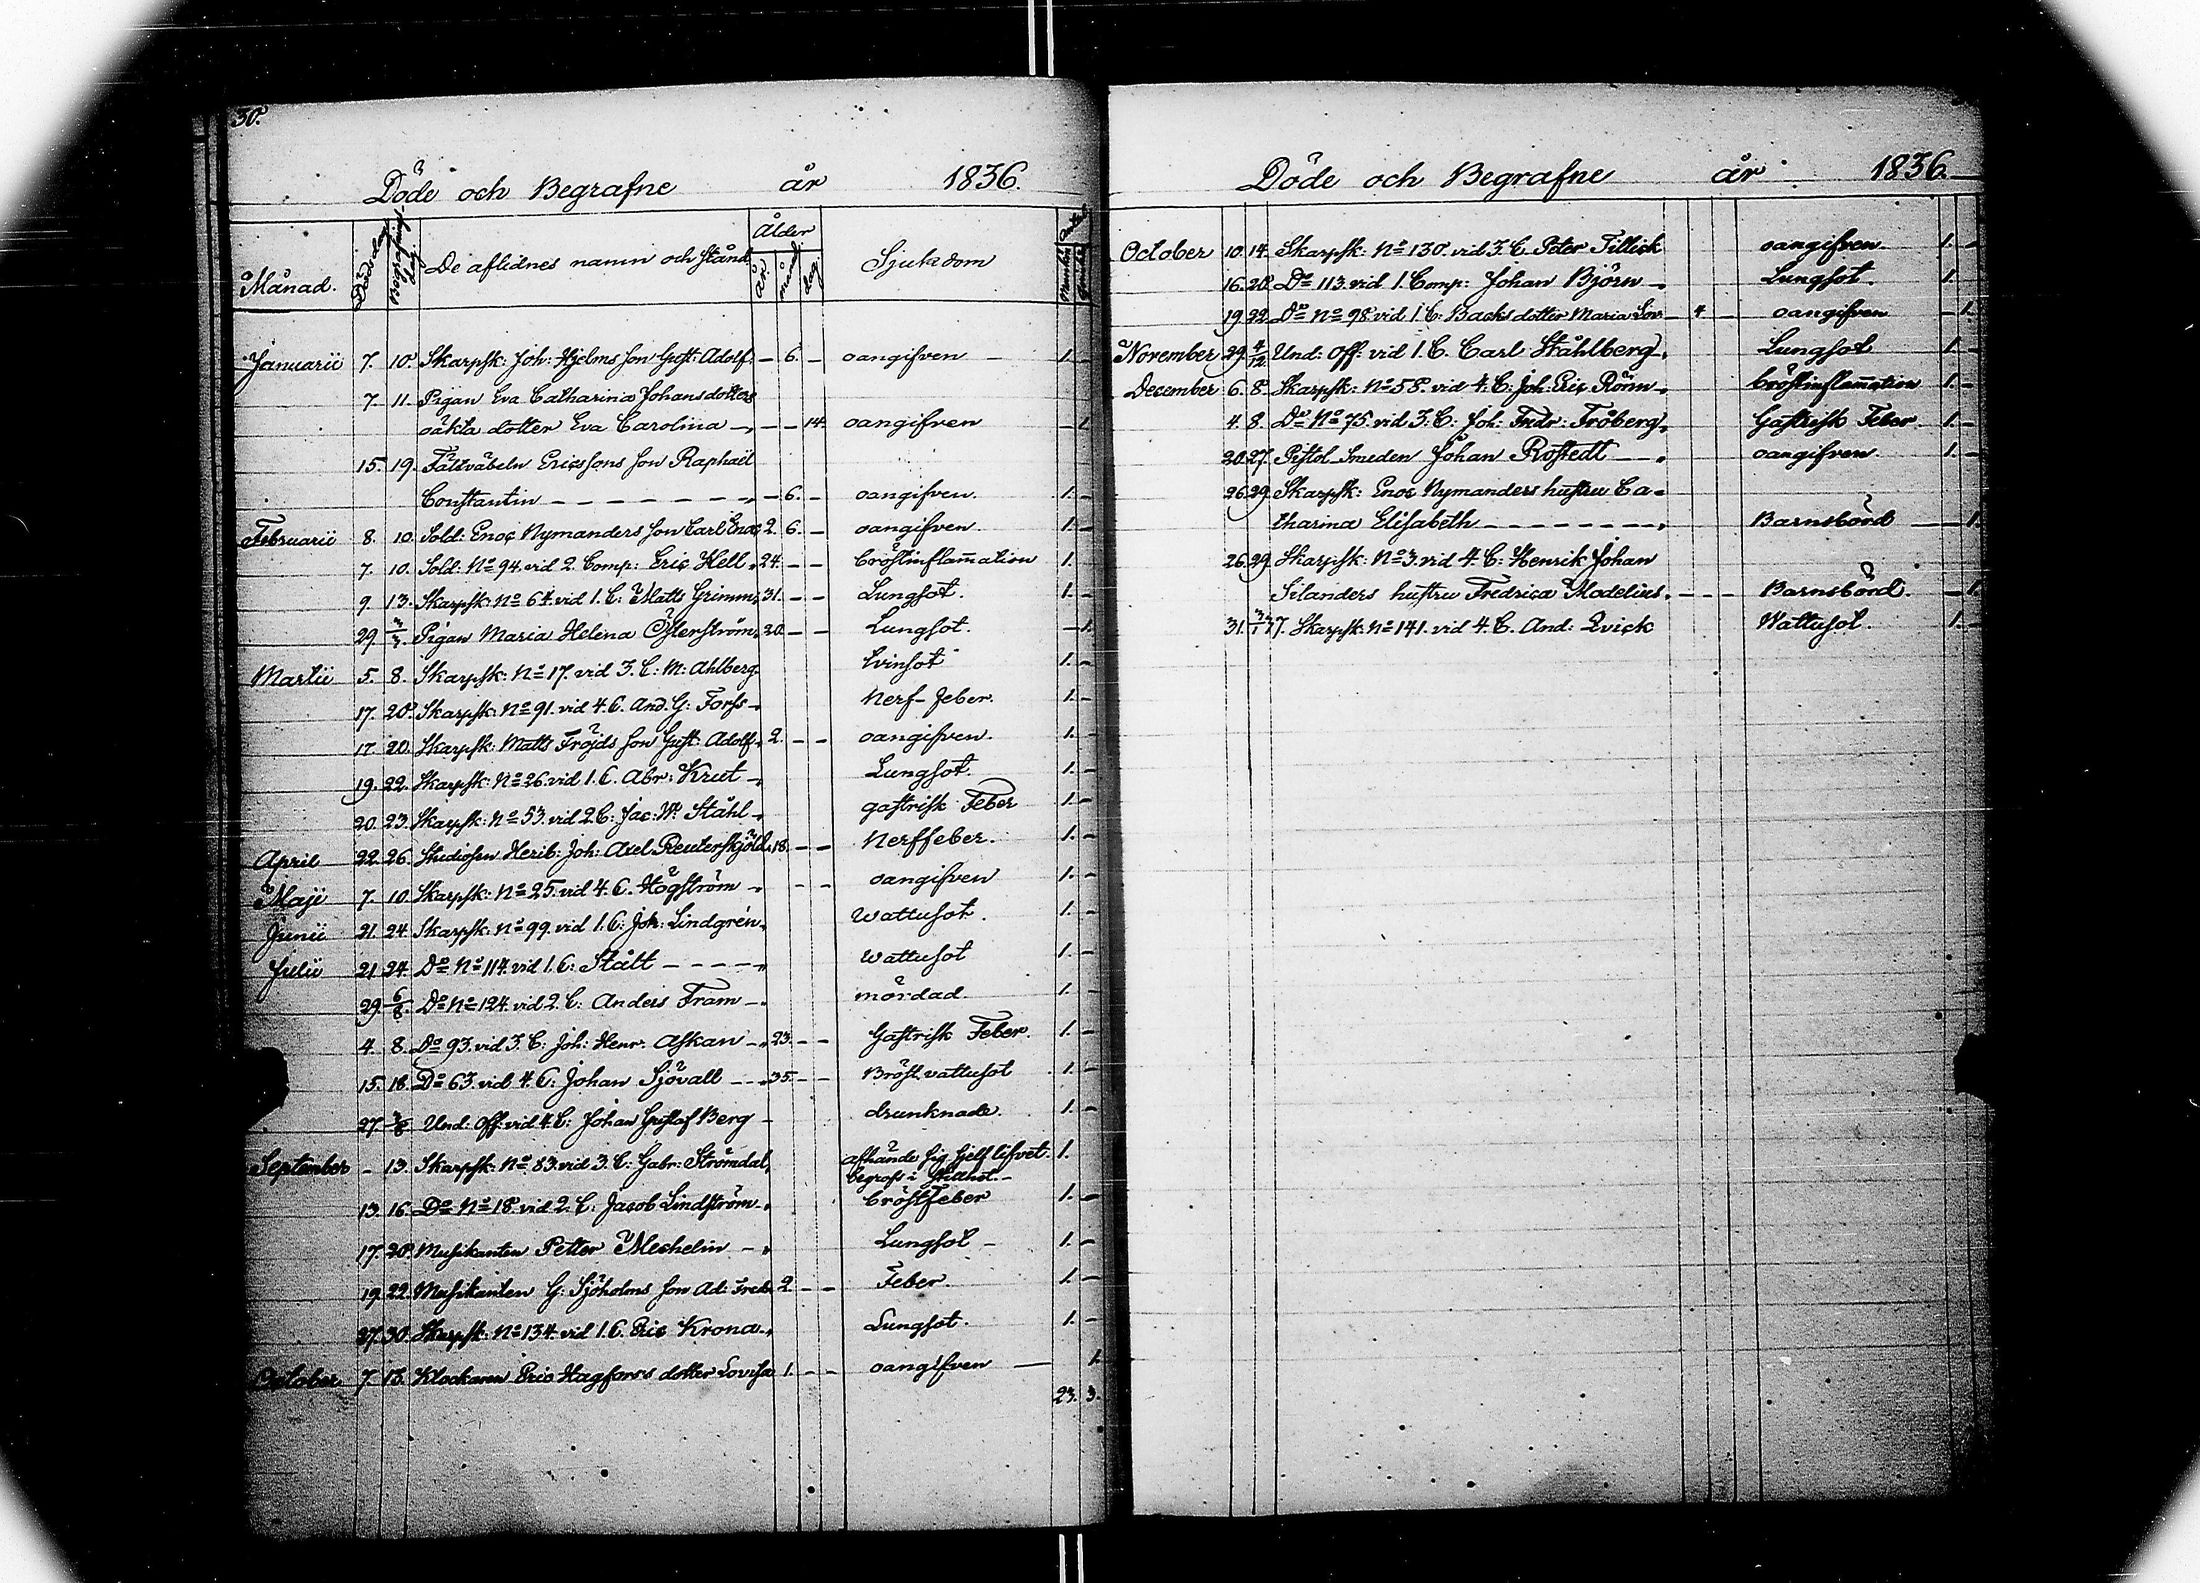 30.
Döde och Begrafne år 1836.
Månad. Dödsdag Begrafnings dag De aflidnes namn och stånd Ålder år månad dag. Sjukdom Mankön Qvinkön
Januarii 7. 10. Skarpsk: Joh: Hjelms son Gust: Adolf. – 6. – oangifven – 1. –
7. 11. Pigan Eva Catharina Johansdotters
oäkta dotter Eva Carolina – – – 14. oangifven – 1.
15. 19. Fältväbeln Ericssons son Raphaël
Constantin – – – – – – – 6. – oangifven. 1. –
Februarii 8. 10. Sold: Enoc Nymanders son Carl Enoc 2. 6. – oangifven. 1. –
7. 10. Sold: No 94. vid 2. Comp: Eric Hell 24. – – bröstinflam̄ation 1.
9. 13. Skarpsk: No 64. vid 1. C: Matts Grimm 31. – – Lungsot. 1. –
29. 3/3. Pigan Maria Helena Österström 20. – – Lungsot. – 1.
Martii 5. 8. Skarpsk: No 17. vid 3. C: M: Ahlberg. tvinsot 1. –
17. 20. Skarpsk: No 91. vid 4. C. And. G: Forss – Nerf-feber. 1. –
17. 20. Skarpsk: Matts Fröjds son Gust: Adolf 2. – – oangifven. 1. –
19. 22. Skarpsk: No 26. vid 1. C. Abr: Krut – Lungsot. 1. –
20. 23. Skarpsk: No 53. vid 2. C: Jac: W: Ståhl – gastrisk Feber 1. –
April 22. 26. Studiosen Herib: Joh: Axel Reuterskjöld 18. – – Nerffeber. 1. –
Maji 7. 10. Skarpsk: No 25. vid 4. C. Högström – – – oangifven 1. –
Junii 21. 24. Skarpsk: No 99. vid 1. C: Joh: Lindgrén wattusot. 1. –
Julii 21. 24. Do No 114. vid 1. C: Stålt – – – – wattusot 1. –
29. 6/8. Do No 124. vid 2. C: Anders Fram – mördad. 1. –
4. 8. Do 93. vid 3. C: Joh: Henr. Askan – 23. – – Gastrisk Feber. 1. –
15. 18. Do 63. vid 4. C: Johan Sjövall – – 35. – – Bröst vattusot 1. –
27. /8 Und: Off: vid 4. C: Johan Gustaf Berg – drunknade. 1. –
September – 13. Skarpsk: No 83. vid 3. C: Gabr: Strömdal, afhände sig sjelf lifvet. 1.
begrofs i stillhet. –
13. 16. Do No 18. vid 2. C: Jacob Lindström – bröstfeber 1. –
17. 20. Musikanten Petter Mechelin – Lungsot – 1. –
19. 22. Musikanten G: Sjöholms son Ad: Fredr 2. – – Feber. 1. –
27. 30. Skarpsk: No 134. vid 1. C. Eric Krona – Lungsot. 1. –
October 7. 13. Klockaren Eric Hagforss dotter Lovisa 1. – – oangifven – 1.
23. 3.
Döde och Begrafne år 1836.
October 10. 14. Skarpsk: No 130. vid 3. C. Peter Tillick oangifven. 1. –
16. 20. Do 113. vid 1. Comp: Johan Björn – Lungsot. 1.
19. 22. Do No 98. vid 1. C: Backs dotter Maria Lov – 4 – oangifven – 1.
November 29. 4/12. Und: Off: vid 1. C. Carl Ståhlberg, Lungsot 1. –
December 6. 8. Skarpsk: No 58. vid 4. C: Joh: Eric Rönn – bröstinflam̄ation 1. –
4. 8. Do No 75. vid 3. C: Joh: Fredr: Fröberg, Gastrisk Feber. 1. –
20. 27. Pistol Smeden Johan Rostedt – – oangifven. 1. –
26. 29. Skarpsk: Enoc Nymanders hustru Ca=
tharina Elisabeth – – – – – – – – Barnsbörd – – 1.
26. 29. Skarpsk: No 3. vid 4. C: Henrik Johan
Silanders hustru Fredrica Modelius. – – – Barnsbörd. – 1.
31. Skarpsk: No 141. vid 4. C. And. Qvick Wattusot. 1. –